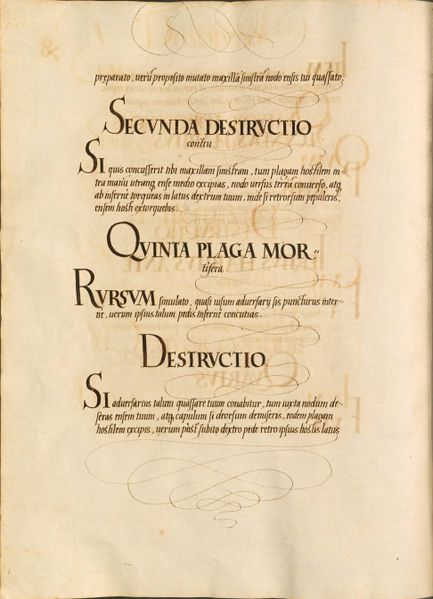 preparato, uerū proposito mutato maxillā sinistrā nodo ensis tui quassato.
SECVNDA DESTRVCTIO
contra
SI quis concusserit tibi maxillam sinistram, tum plagam hostilem in-
tra manū utranq, ense medio excipias, nodo uersus terrā conuerso, atq,
ab infernè torqueas in latus dextrum tuum, inde si retrorsum pepuleris,
ensem hosti extorquebis.
QVINTA PLAGA MOR-
tifera
RVRSVM simulato, quasi uisum aduersarij sis puncturus inter-
nè, uerum ipsius talum pedis infernè concutias.
DESTRVCTIO
SI aduersarius talum quassare tuum conabitur, tum iuxta nodum de-
feras ensem tuum, atq, capulum si deorsum demiseris, eodem plagam
hostilem excipis, uerum post subito dextro pede retro ipsius hostis latus